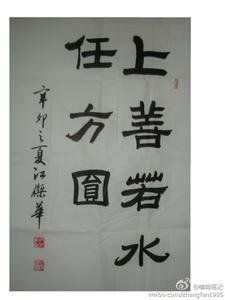 上善若水
任方圓
辛卯之夏江傑華
@喃喃笔记
weibo.com/zhangfan1986